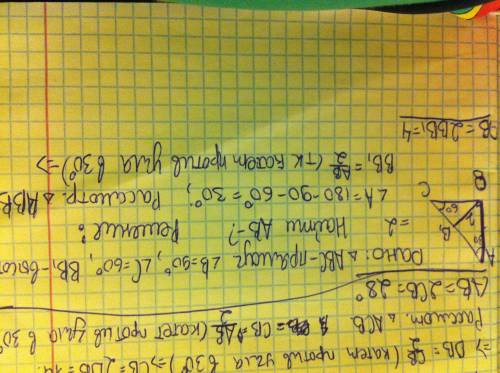 => DB = CB/2 (катет против угла в 30°) => CB = 2DB =
Рассмот. △ ACB CB = AB/2 (катет против угла в 30°
AB = 2CB = 28°
Дано: △ ABC-прямоуг ∠B=90°, ∠C=60°, BB₁-высот
= 2 Найти AB-?
Решение:
∠A=180-90-60°=30°; Рассмотр. △ ABB
BB₁ = AB/2 (тк катет против угла в 30°) =>
AB = 2BB₁=4
A
B₁
2
60°
B
C